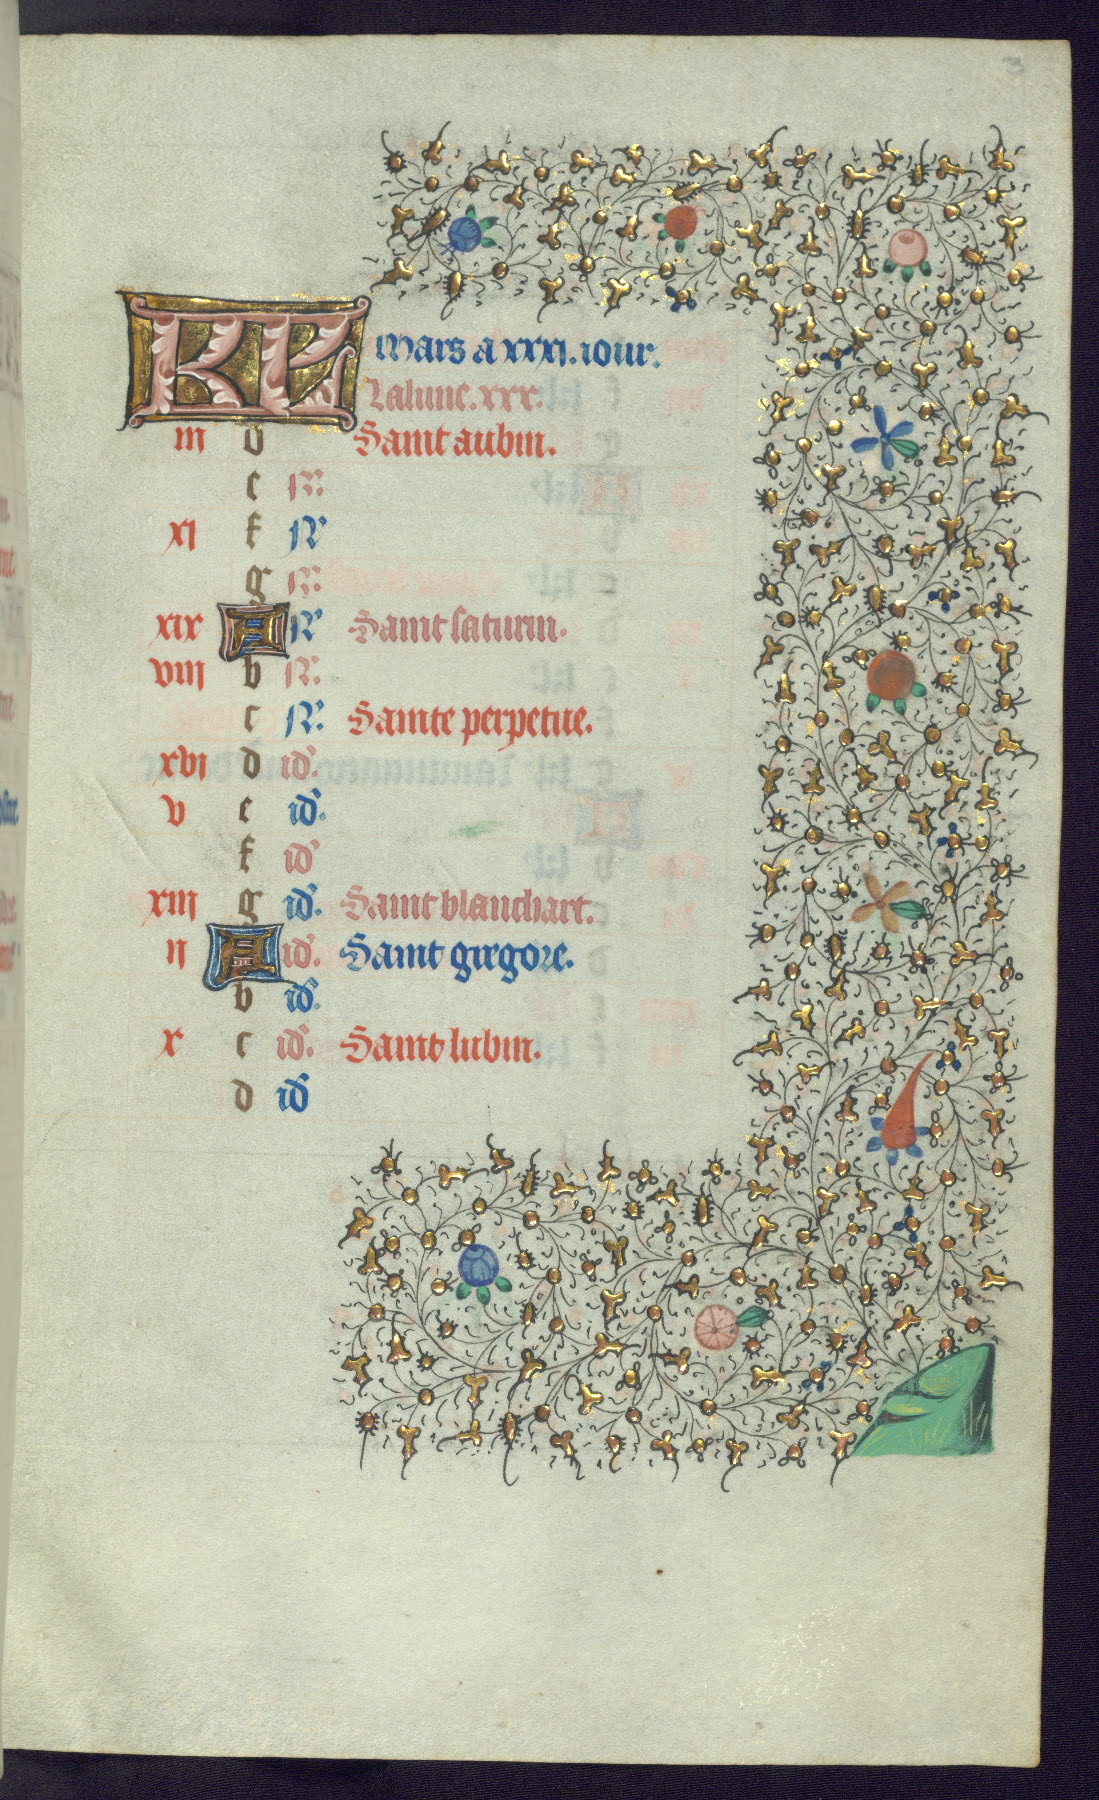 3
KL Mars a xxxi. iour.
La lune. xxx.
iii d Saint aubin.
e N.
xi f N
g N.
xix A N Saint saturin.
viii b N.
c N. Sainte perpetue.
xvi d id.
v e id.
f id
xiii g id. Saint blanchart.
ii A id. Saint gregore.
b id.
x c id. Saint lubin.
d id